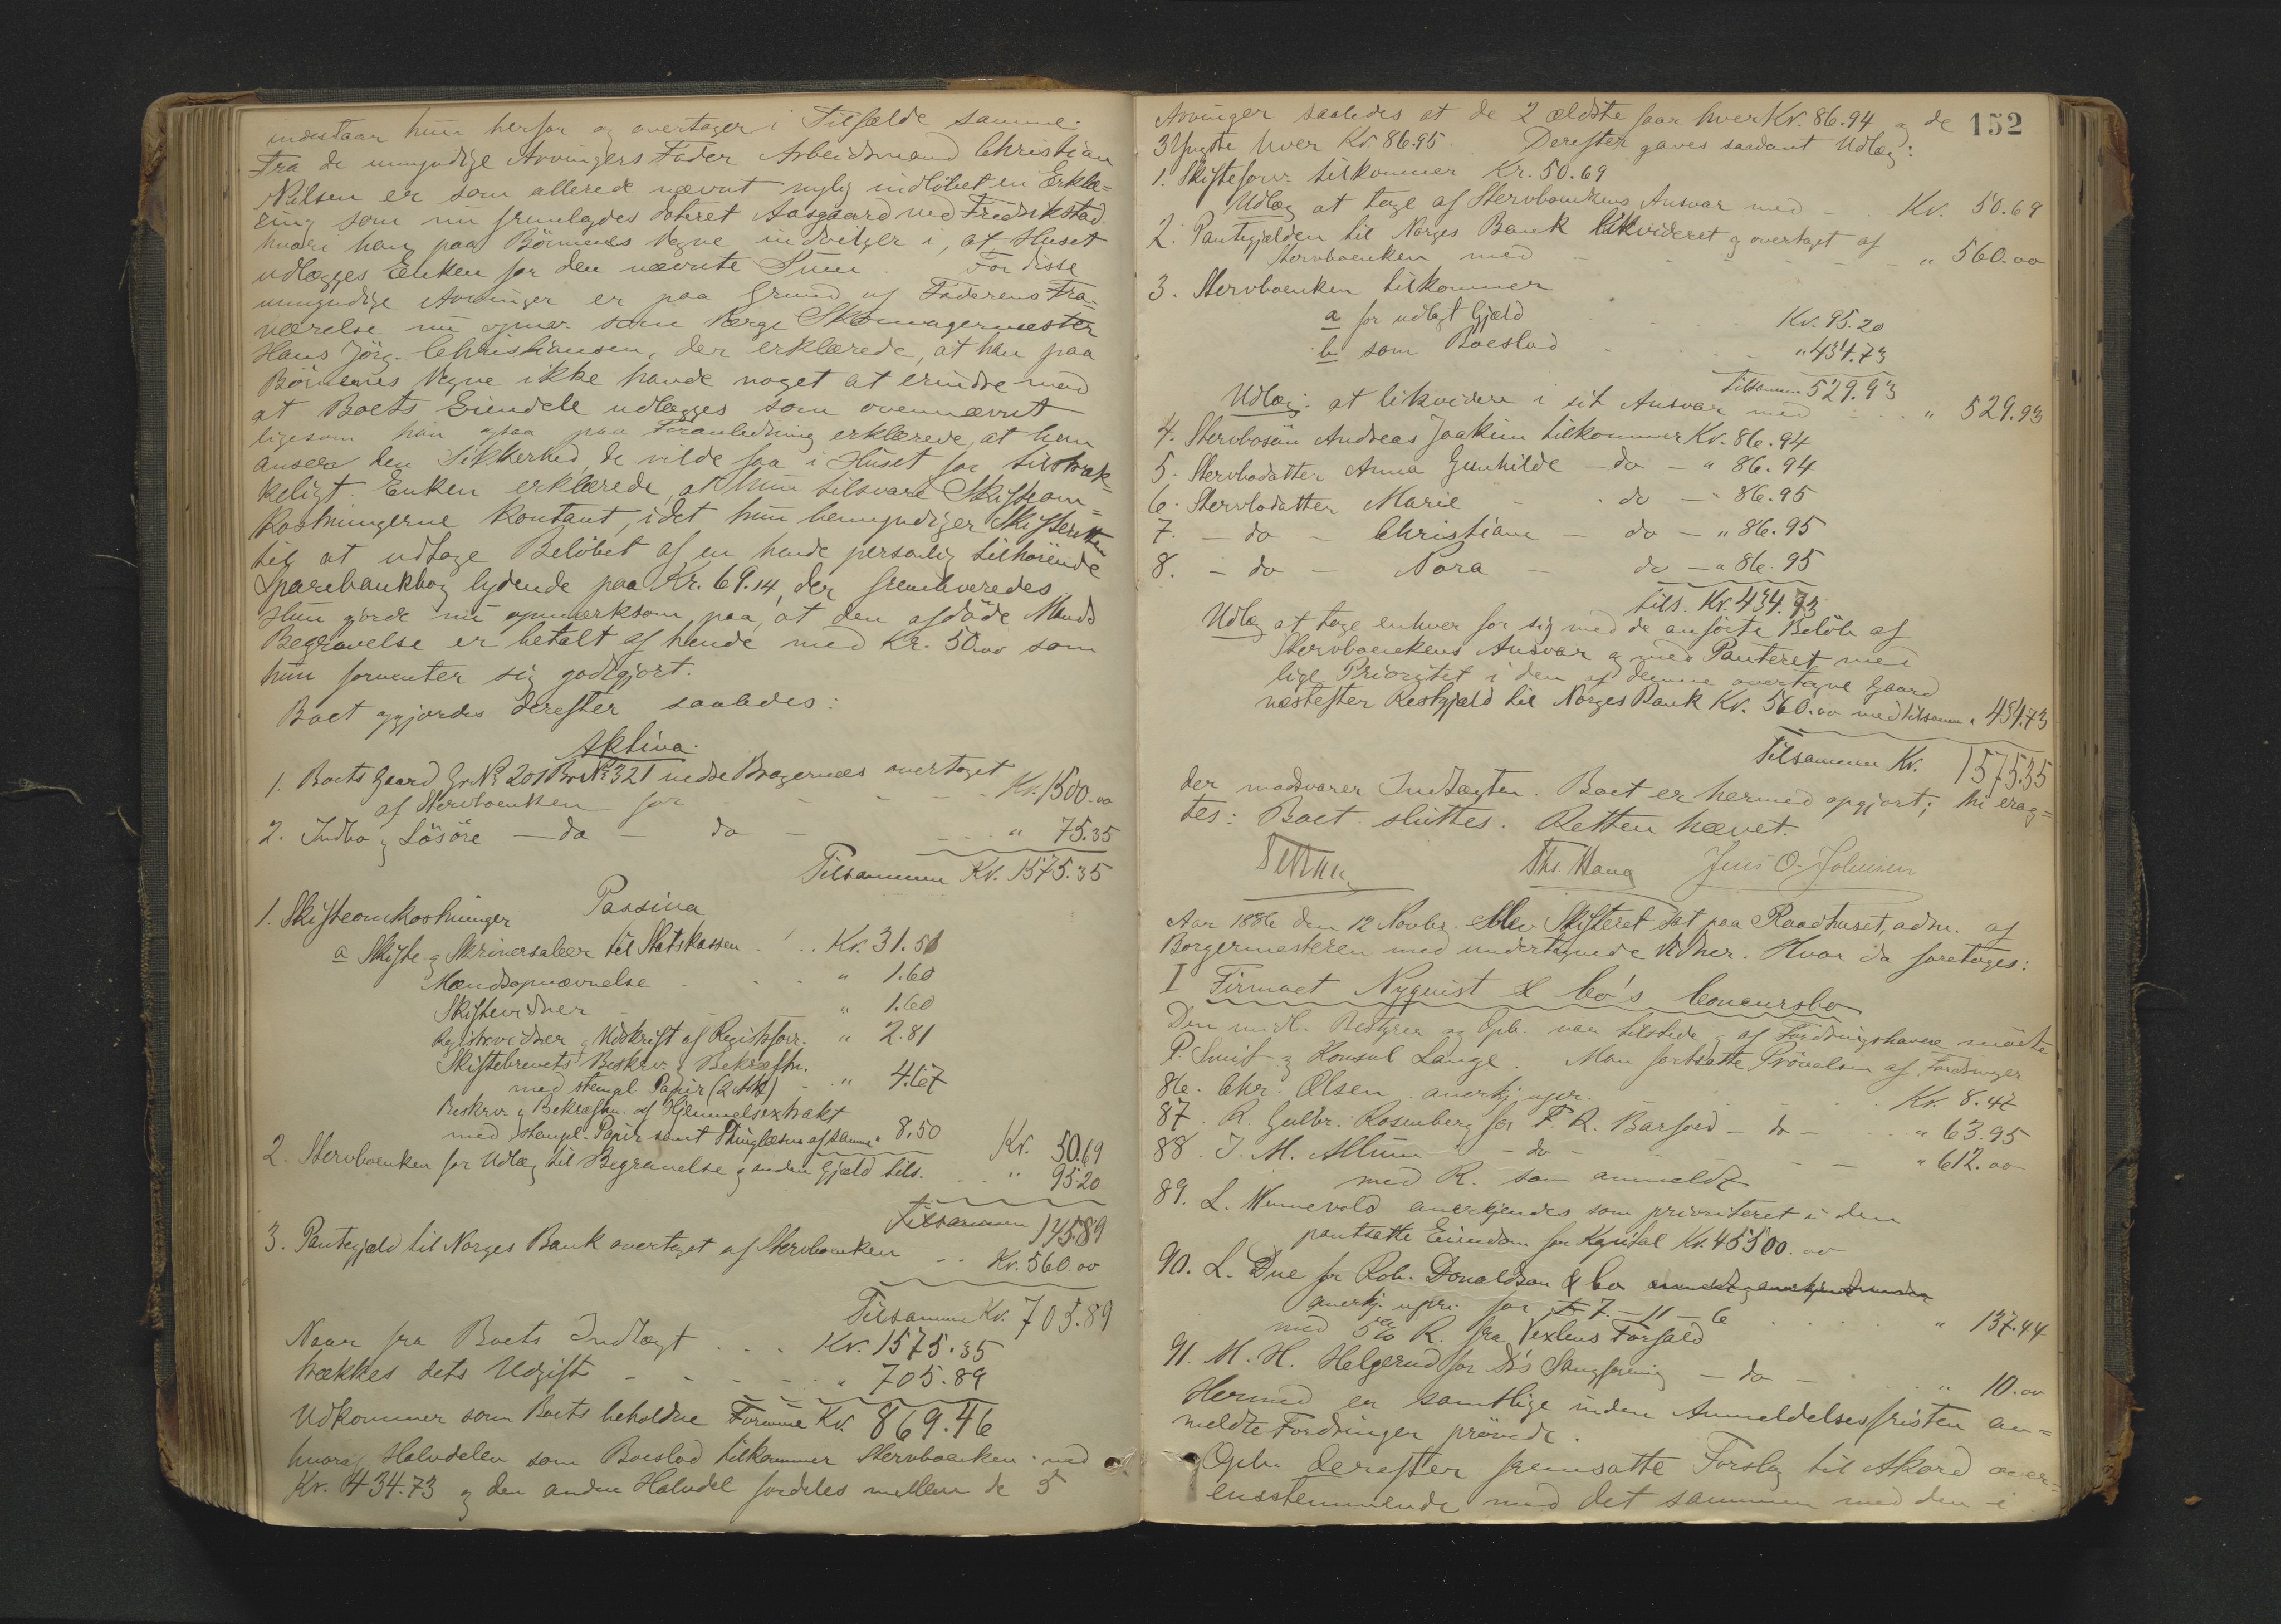 indestaar hun herfor og overtager i Tilfælde samme.
Fra de umyndige Arvingers Fader Arbeidsmand Christian
Nilsen er som allerede nævnt nylig indløbet en Erklæ=
ring som nu fremlagdes dateret Aasgaard ved Fredrikstad
hvori han paa Børnenes Vegne indvilger i, at Huset
udlægges Enken for den nævnte Sum. For disse
umyndige Arvinger er paa Grund af Faderens Fra=
værelse nu opnæv. som Værge Skomagermester
Hans Jörg. Christiansen, der erklærede, at han paa
Børnenes Vegne ikke havde noget at erindre mod
at Boets Eiendele udlægges som ovennævnt
ligesom han ogsaa paa Foranledning erklærede, at han
anser den Sikkerhed, de vilde faa i Huset for tilstræk=
keligt. Enken erklærede, at hun tilsvare Skifteom=
kostningerne kontant, idet hun bemyndiger Skifteretten
til at udtage Beløbet af en hende personlig tilhørende
Sparebankbog lydende paa Kr. 69.14, der fremleveredes
Hun gjorde nu opmærksom paa, at den afdøde Mands
Begravelse er betalt af hende med Kr. 50.00 som
hun forventer sig godtgjort.
Boet opgjordes derefter saaledes:
Aktiva.
1. Boets Gaard Gr.No 201 Br.No 321 nedre Bragernæs overtaget
af Stervboenken for - - - - Kr. 1500.00
2. Indbo og Løsøre - do - do - - - " 75.35
Tilsammen Kr. 1575.35
Passiva
1. Skifteomkostninger
a Skifte- og Skriversalær til Statskassen . . . Kr. 31.51
Mændsopnævnelse . . " 1.60
Skiftevidner " 1.60
Registrevidner og Udskrift af Registrforr. " 2.81
Skiftebrevets Beskriv. og Bekræftn.
med stempl. Papir (2 Ark) - " 4.67
Beskriv. og Bekræftn. af Hjemmelsextrakt
med stempl. Papir samt Thinglæsn. af samme " 8.50 Kr. 50.69
2. Stervboenken for Udlæg til Begravelse og anden Gjæld tils. . . " 95.20
Tilsammen 145.89
3. Pantegjæld til Norges Bank overtaget af Stervboenken . . Kr. 560.00
Tilsammen Kr. 705.89
Naar fra Boets Indtægt . . . Kr. 1575.35
trækkes dets Udgift - - - - " 705.89
Udkommer som Boets beholdne Formue Kr. 869.46
hvoraf Halvdelen som Boeslod tilkommer Stervboenken med
Kr. 434.73 og den anden Halvdel fordeles mellem de 5
152
Arvinger saaledes at de 2 ældste faar hver Kr. 86.94 og de
3 Yngste hver Kr. 86.95. Derefter gaves saadant Udlæg:
1. Skifteforv. tilkommer Kr. 50.69
Udlæg at tage af Stervboenkens Ansvar med - . . Kr. 50.69
2. Pantegjælden til Norges Bank likvideret og overtaget af
Stervboenken med - - - - - " 560.00
3. Stervboenken tilkommer
a for udlagt Gjæld . . . Kr. 95.20
b som Boeslod - - - " 434.73
Tilsammen 529.93
Udlæg: at likvidere i sit Ansvar med . . . " 529.93
4. Stervbosøn Andreas Joakim tilkommer Kr. 86.94
5. Stervbodatter Anna Gunhilde - do - " 86.94
6. Stervbodatter Marie - do - " 86.95
7. - do - Christiane - do - " 86.95
8. - do - Nora - do - " 86.95
tils. Kr. 434.73
Udlæg at tage enhver for sig med de anførte Beløb af
Stervboenkens Ansvar og med Panteret med
lige Prioritet i den af denne overtagne Gaard
næstefter Restgjæld til Norges Bank Kr. 560.00 med tilsamm. " 434.73
Tilsammen Kr. 1575.35
der modsvarer Indtægten. Boet er hermed opgjort; thi erag=
tes: Boet sluttes. Retten hævet.
Ths. Haug Jens O. Johnsen
Aar 1886 den 12 Novbr. blev Skifteret sat paa Raadhuset, adm. af
Borgermesteren med undertegnede Vidner. Hvor da foretoges:
I Firmaet Nyquist & Co's Concursbo
Den midl. Bestyrer og Opb. var tilstede og af Fordringshavere mødte
P. Smit og Konsul Lange. Man fortsatte Prøvelsen af Fordringer
86. Chr. Olsen anerkj. upr. . . . Kr. 8.47
87. R. Gulbr. Rosenberg for F. R. Barfoed - do - . . " 63.95
88. J. M. Allum - do - - - - " 612.00
med R. som anmeldt
89. L. Wunevold anerkjendes som prioriteret i den
pantsatte Eiendom for Kapital Kr. 45500.00
90. L. Due for Rob. Donaldson & Co
anerkj. upri. for £ 7-11-6 . . . . " 137.44
med 5% R. fra Vexlens Forfald
91. M. H. Helgerud for D's Sangforening - do - . . " 10.00
Hermed er samtlige inden Anmeldelsesfristen an=
meldte Fordringer prøvede.
Opb. derefter fremsatte Forslag til Akord over=
ensstemmende med det sammen med den i